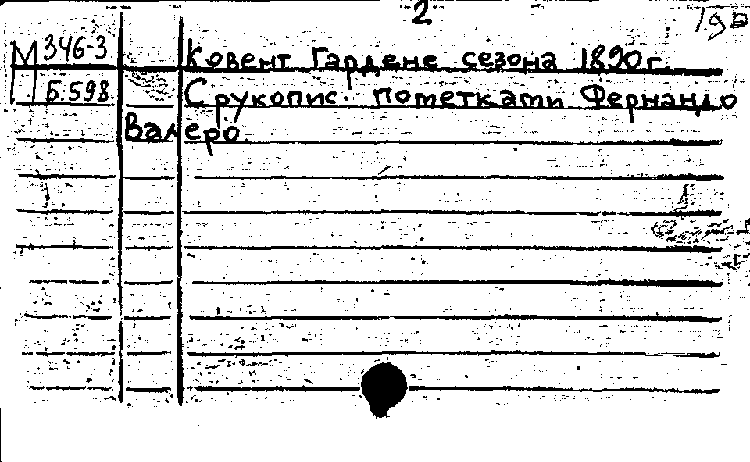 2
М 346-3 Ковент Гардене сезона 1890 г.
Б.598 С рукопис. пометками Фернандо
Валеро.